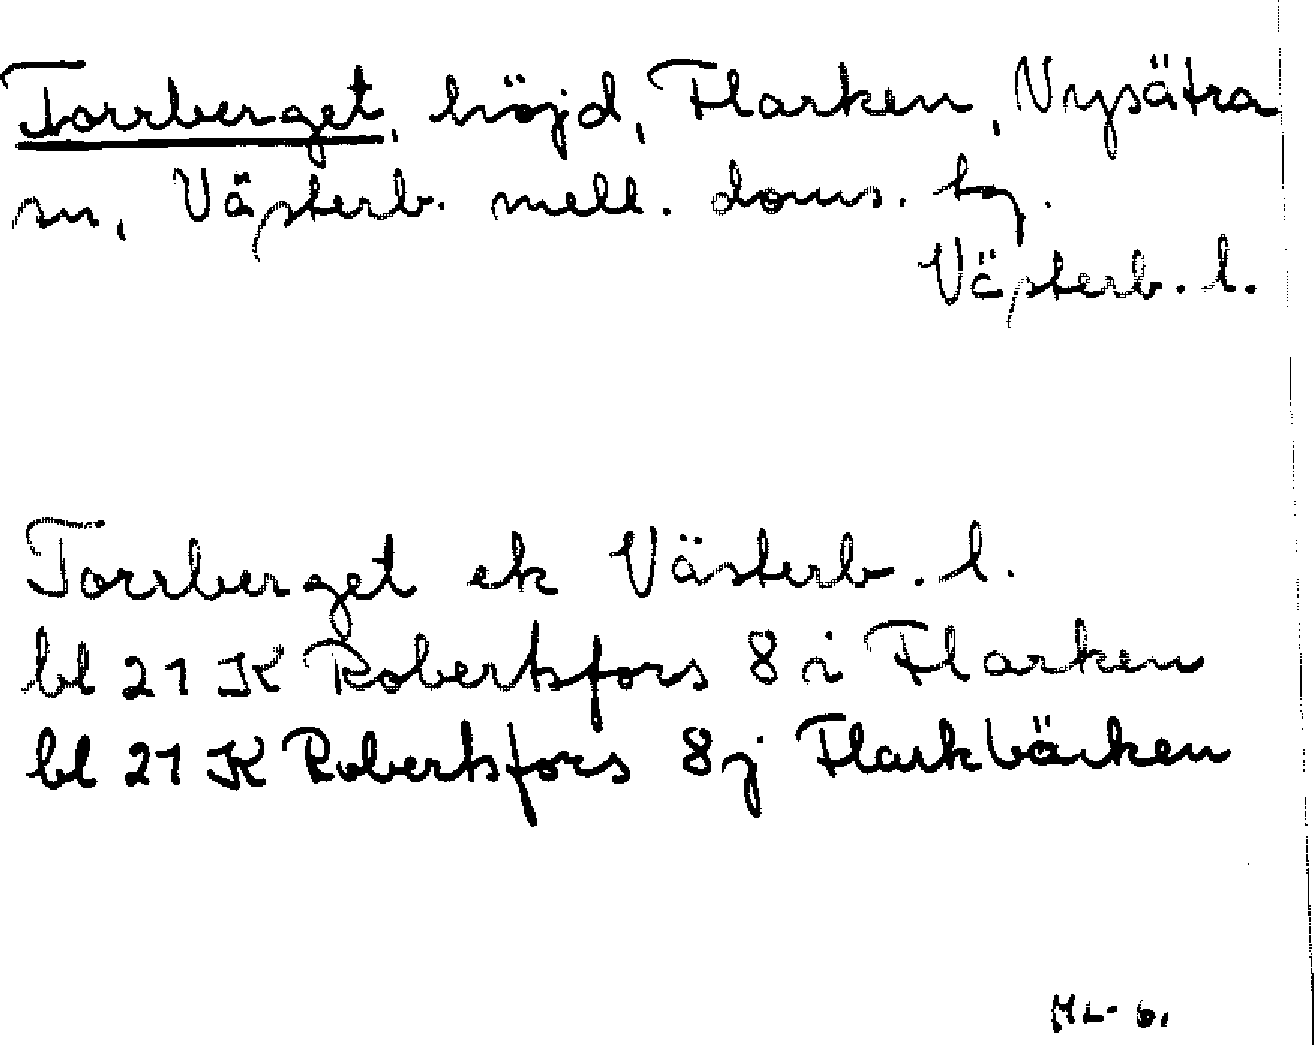 Torrberget, höjd, Flarken, Nysätra
sn, Västerb. mell. doms. tg.
Västerb. l.
Torrberget ek Västerb. l.
bl 21 K Robertsfors 8 i Flarken
bl 21 K Robertsfors 8 j Flarkbäcken